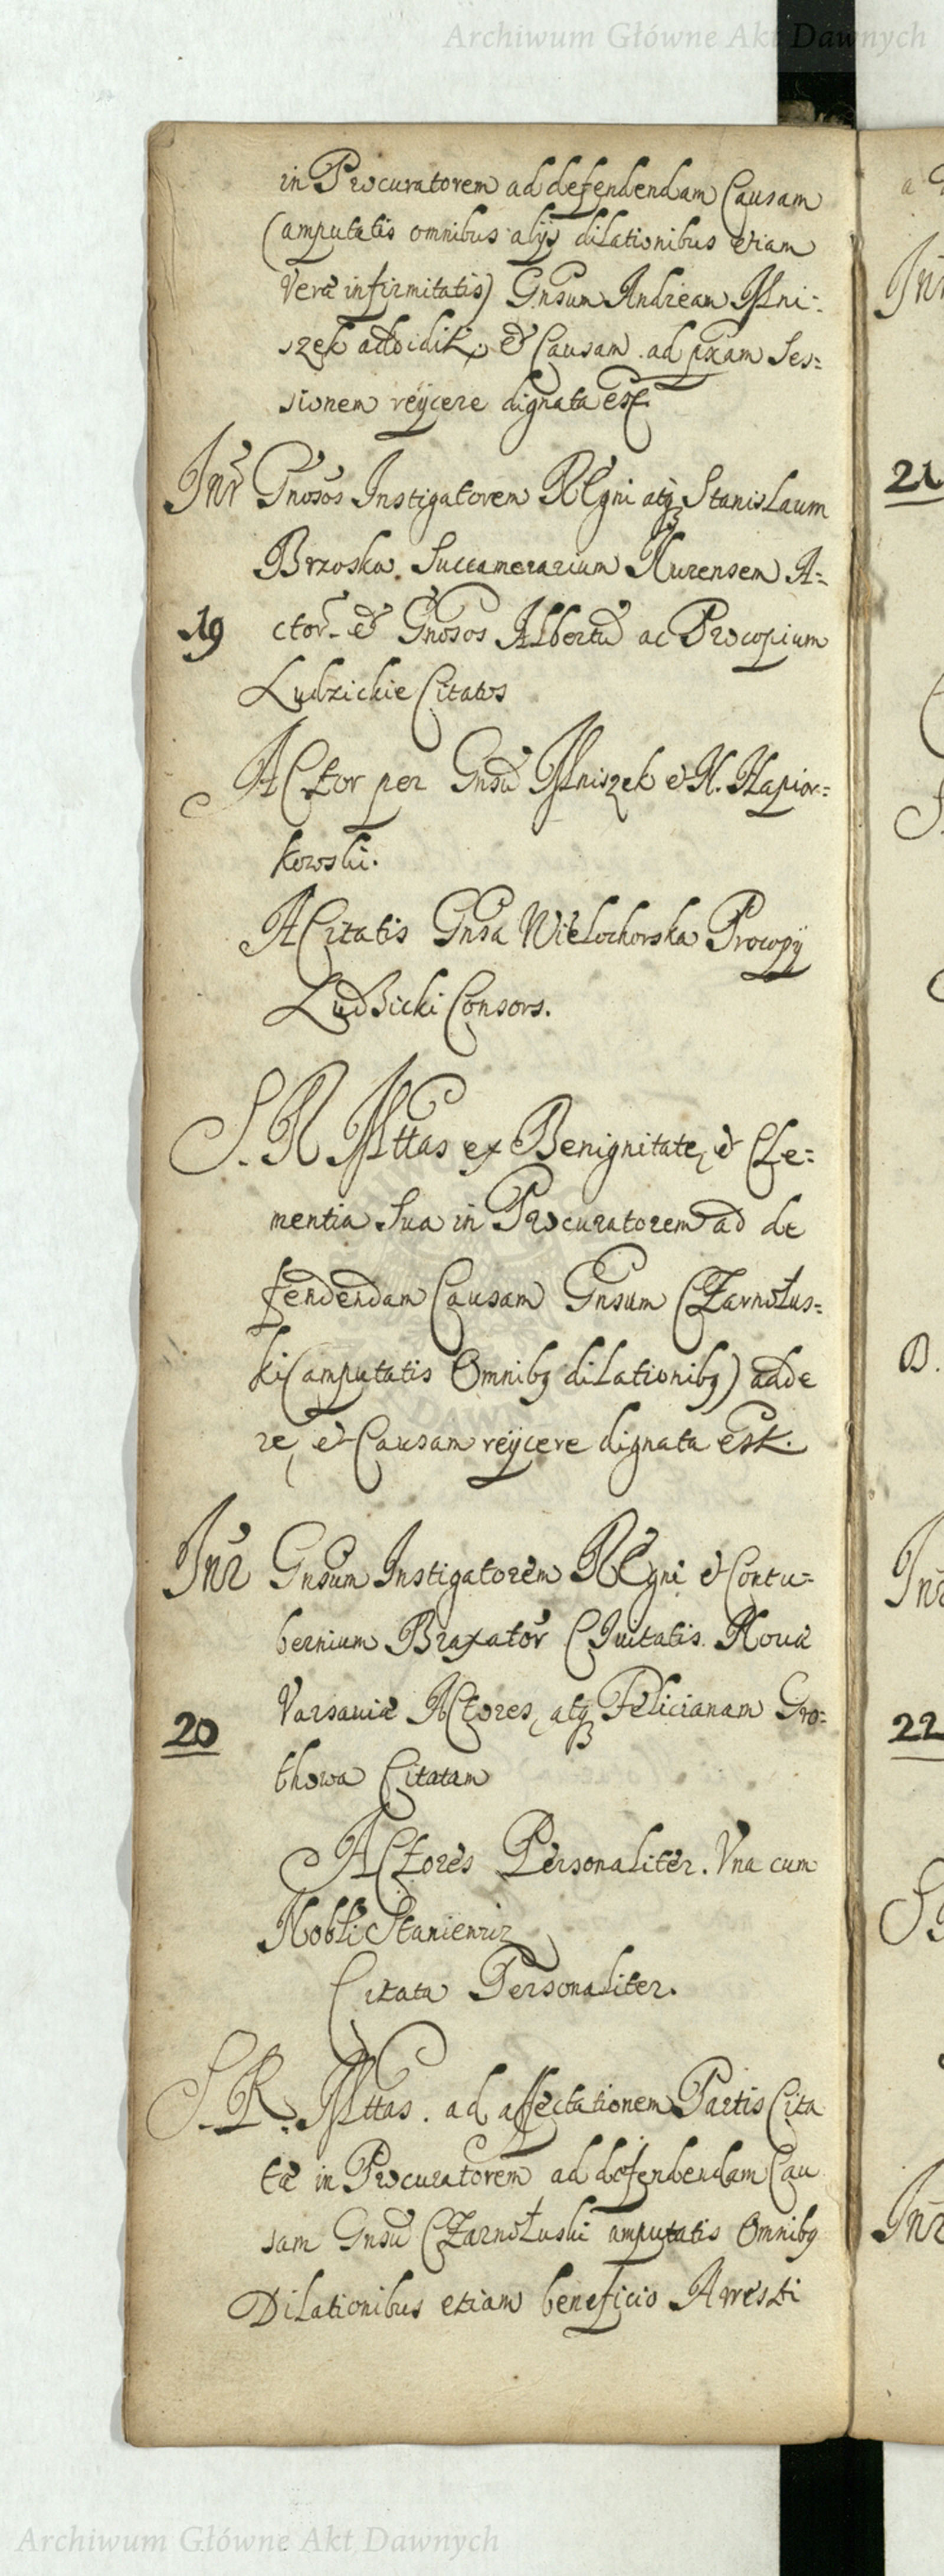 Archiwum Główne Akt Dawnych
in Procuratorem ad defendendam Causam
(amputatis omnibus alijs dilationibus etiam
Veræ infirmitatis) Gnsum Andream Mni:
szek addidit, et Causam ad pxam Ses:
sionem reÿcere dignata est
Inr Gnosos Instigatorem REgni atq Stanislaum
Brzoska Succamerarium Nurensem A:
19 ctor. et Gnosos Albertū ac Procopium
Ludzickie Citatos
ACtor per Gnsū Mniszek et N. Napior:
kowski.
A Citatis Gnsa Wielochorska Procopÿ
Ludzicki Consors.
S. R. Mttas ex Benignitate, et Cle:
mentia Sua in Procuratorem ad de
fendendam Causam Gnsum CZarnołus:
ki (amputatis Omnibq dilationibq) adde
re, et Causam reÿcere dignata est.
Inr Gnsum Instigatorem REgni et Contu:
bernium Braxator CIuitatis Nouæ
20 Varsauiæ ACtores, atq Felicianam Gro:
thowa Citatam
ACtores Personaliter. Vna cum
Nobli Staniewiz
Citata Personaliter.
S. R. Mttas. ad affectationem Partis Cita
tæ in Procuratorem ad defendendam Cau
sam Gnsū CZarnołuski amputatis Omnibq
Dilationibus etiam beneficio Arresti
21
B.
22
Archiwum Główne Akt Dawnych